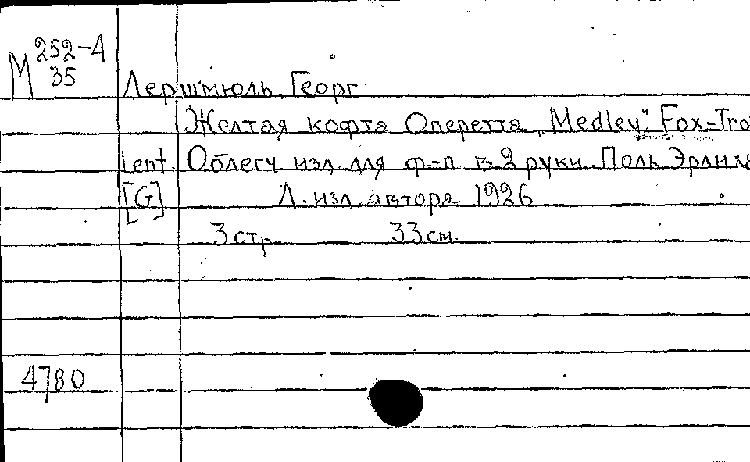 М 252-4
35
Лершмюль, Георг
Желтая кофта Оперетта „Medley“ Fox-Tro
ent. Облегч изд. для ф-п. в 2 руки. Поль Эрлих
[G] Л. изд. автора 1926
3 стр. 33 см.
4780